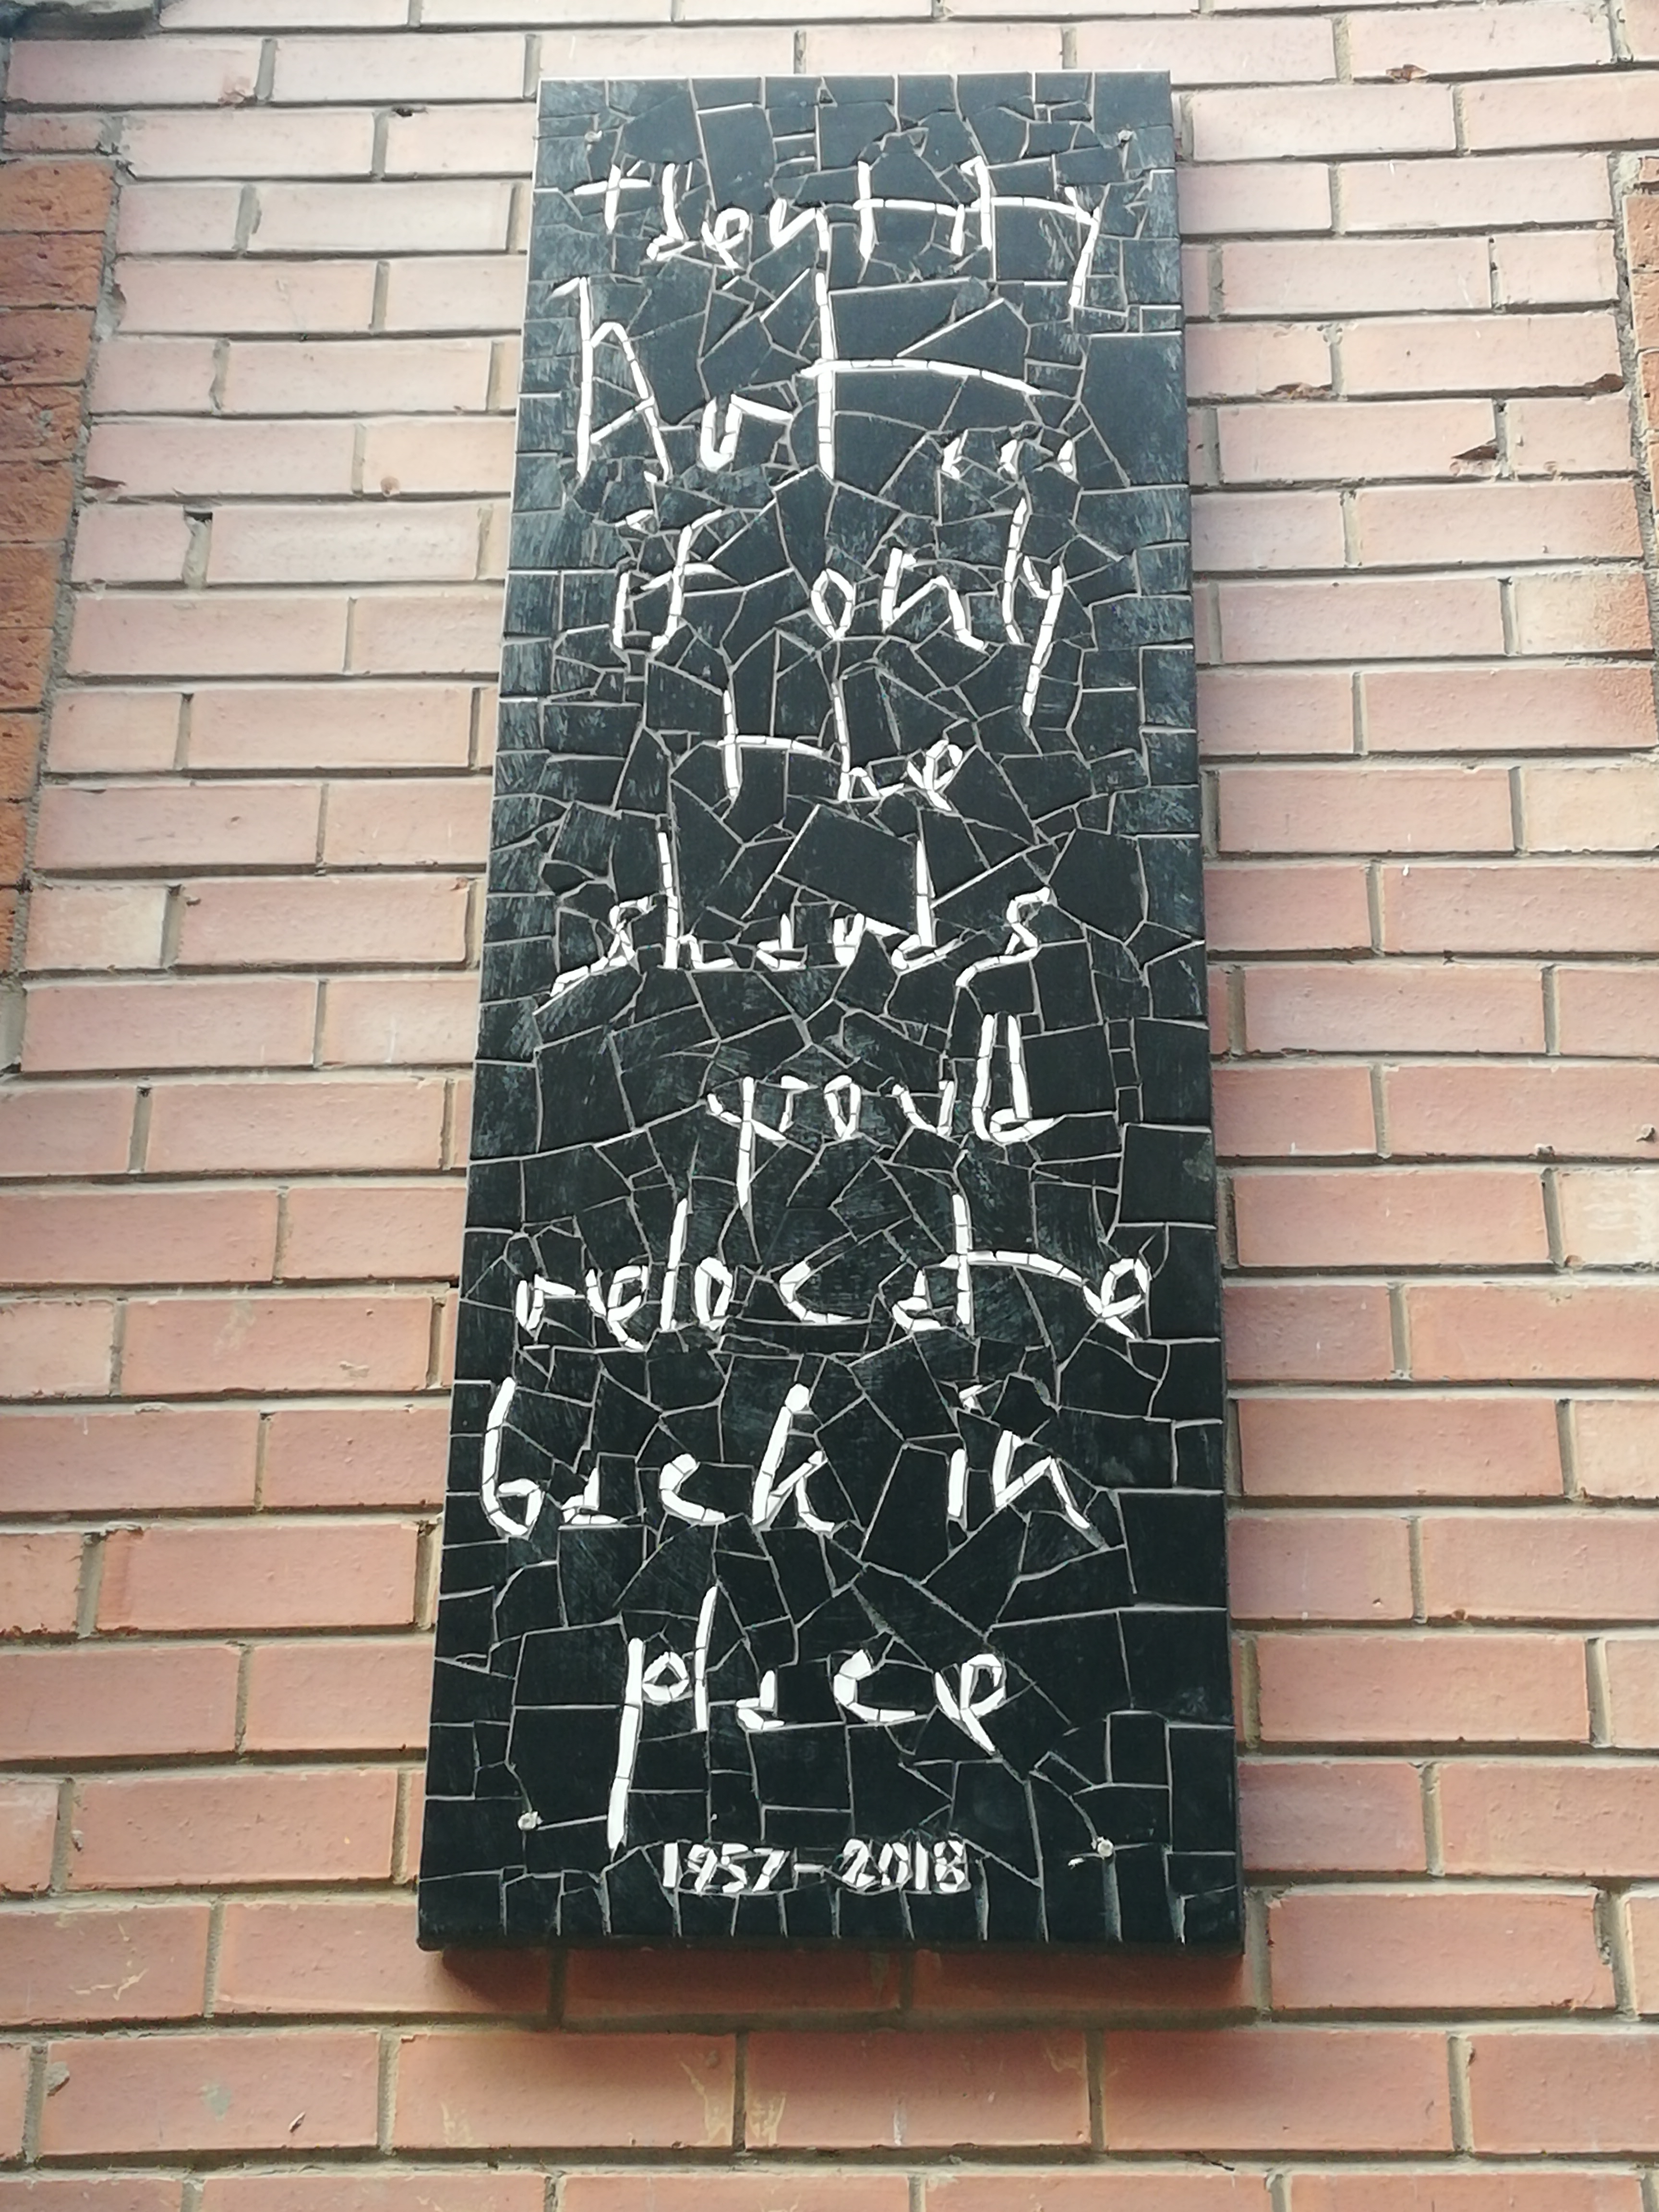 Identity
Art ...
if only
the
shards
would
relocate
back in
place
1957-2018